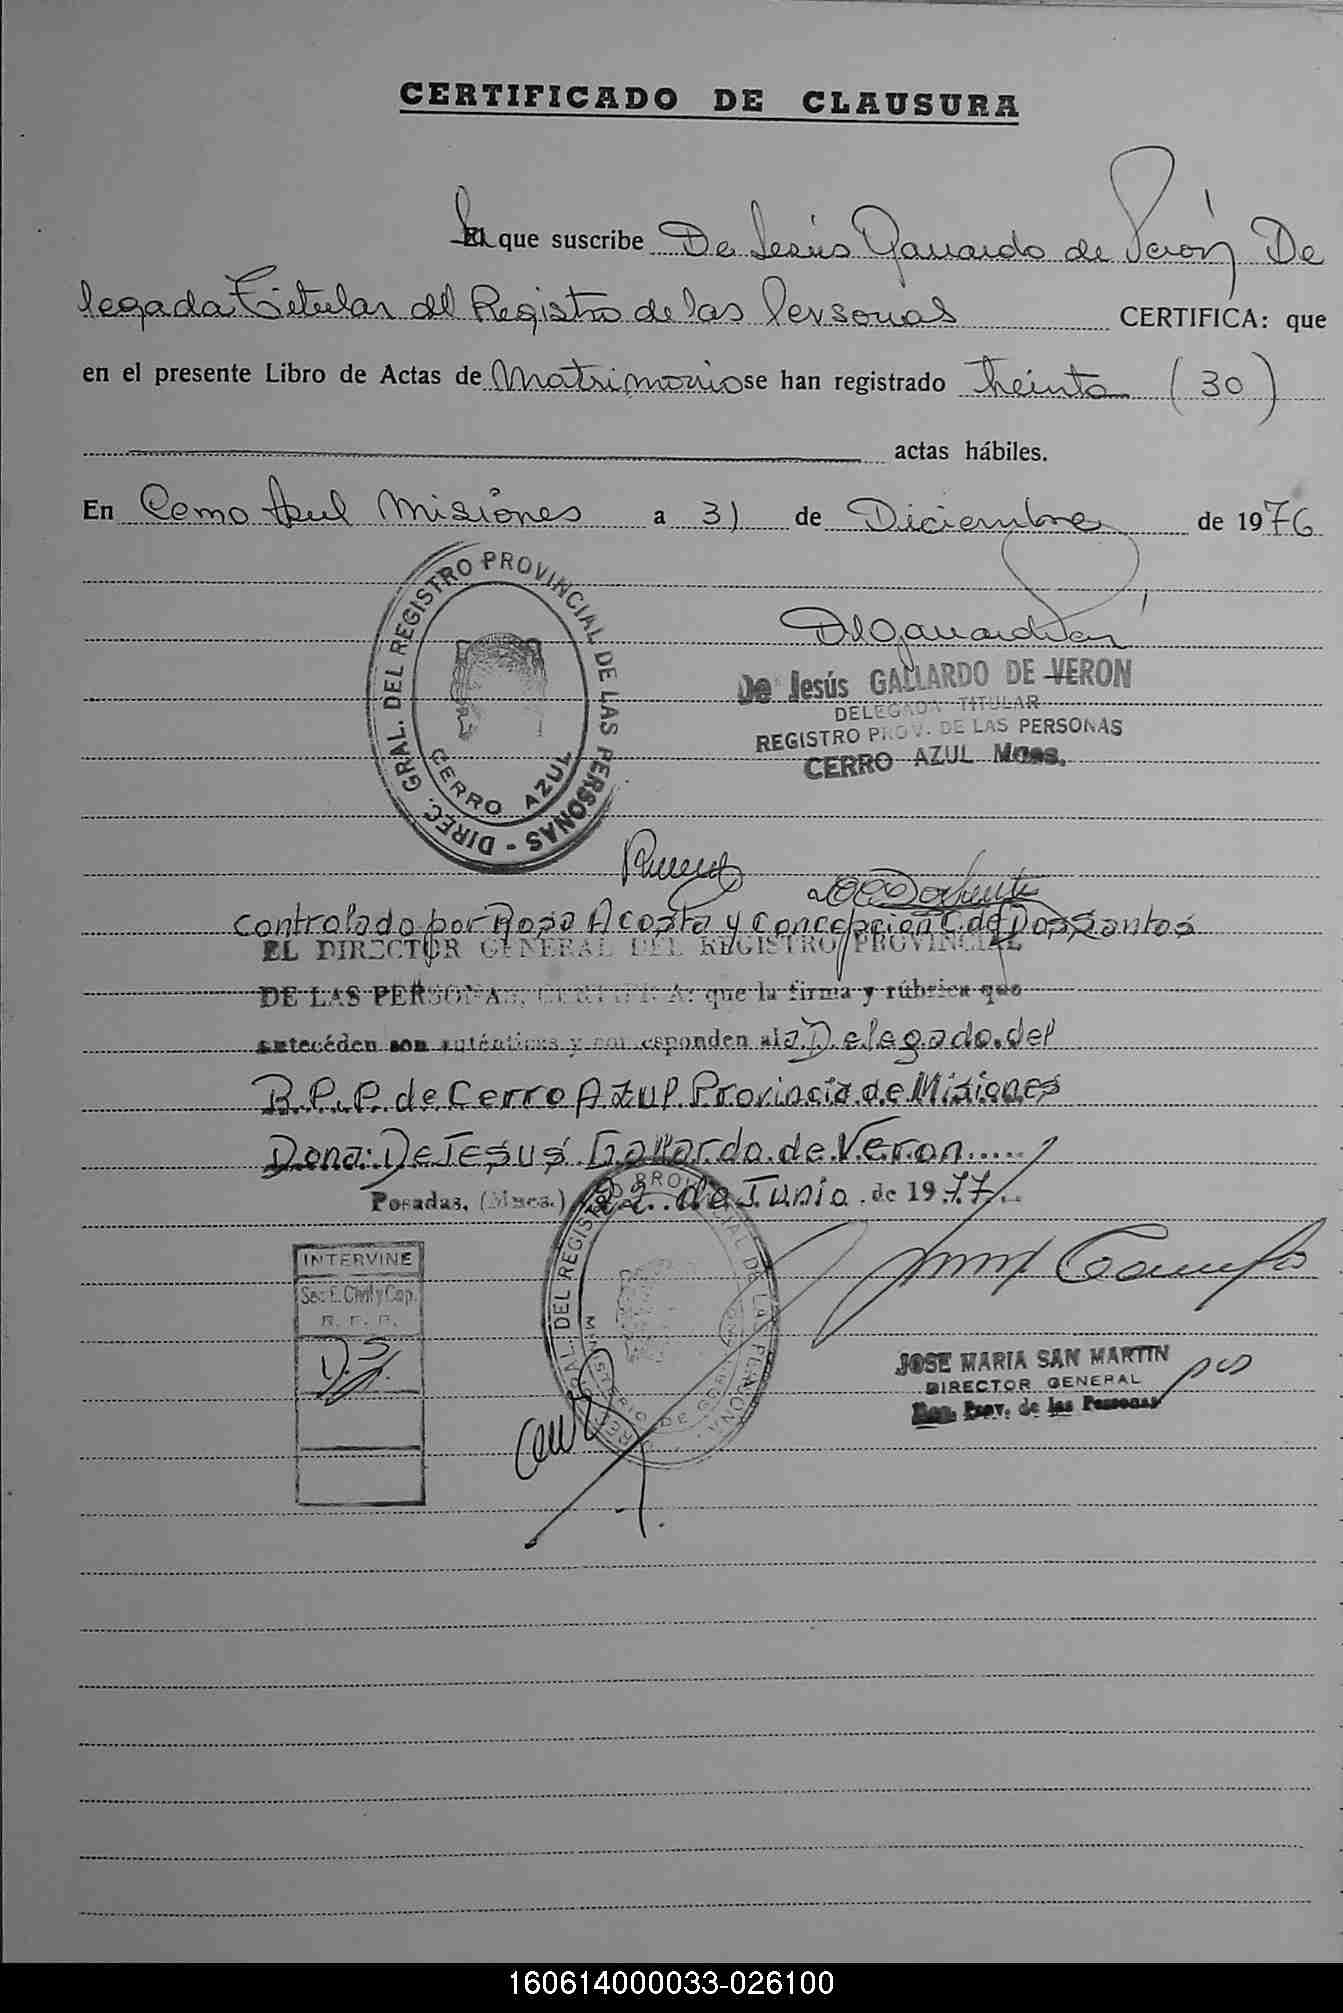 CERTIFICADO DE CLAUSURA
La que suscribe De Jesús Gallardo de Verón De
legada Titular del Registro de las Personas CERTIFICA: que
en el presente Libro de Actas de Matrimonio se han registrado treinta (30)
actas hábiles.
En Cerro Azul Misiones a 31 de Diciembre de 1976
DIREC. GRAL. DEL REGISTRO PROVINCIAL DE LAS PERSONAS -
CERRO AZUL
De Jesús GALLARDO DE VERON
DELEGADA TITULAR
REGISTRO PROV. DE LAS PERSONAS
CERRO AZUL Mnes.
Controlado por Rosa Acosta y Concepcion C. de Dos Santos
EL DIRECTOR GENERAL DEL REGISTRO PROVINCIAL
DE LAS PERSONAS, CERTIFICA: que la firma y rúbrica que
anteceden son auténticas y corresponden a la Delegada del
R.P.P. de Cerro Azul Provincia de Misiones
Dona: De Jesus Gallardo de Veron.....
Posadas, (Mnes.) 22 de Junio de 1977
INTERVINE
Sec. E. Civil y Cap.
R. P. P.
D.S.
DEL REGISTRO PROVINCIAL DE LAS PERSONAS
MINISTERIO DE GOBIERNO
JOSE MARIA SAN MARTIN
DIRECTOR GENERAL
Reg. Prov. de las Personas
160614000033-026100